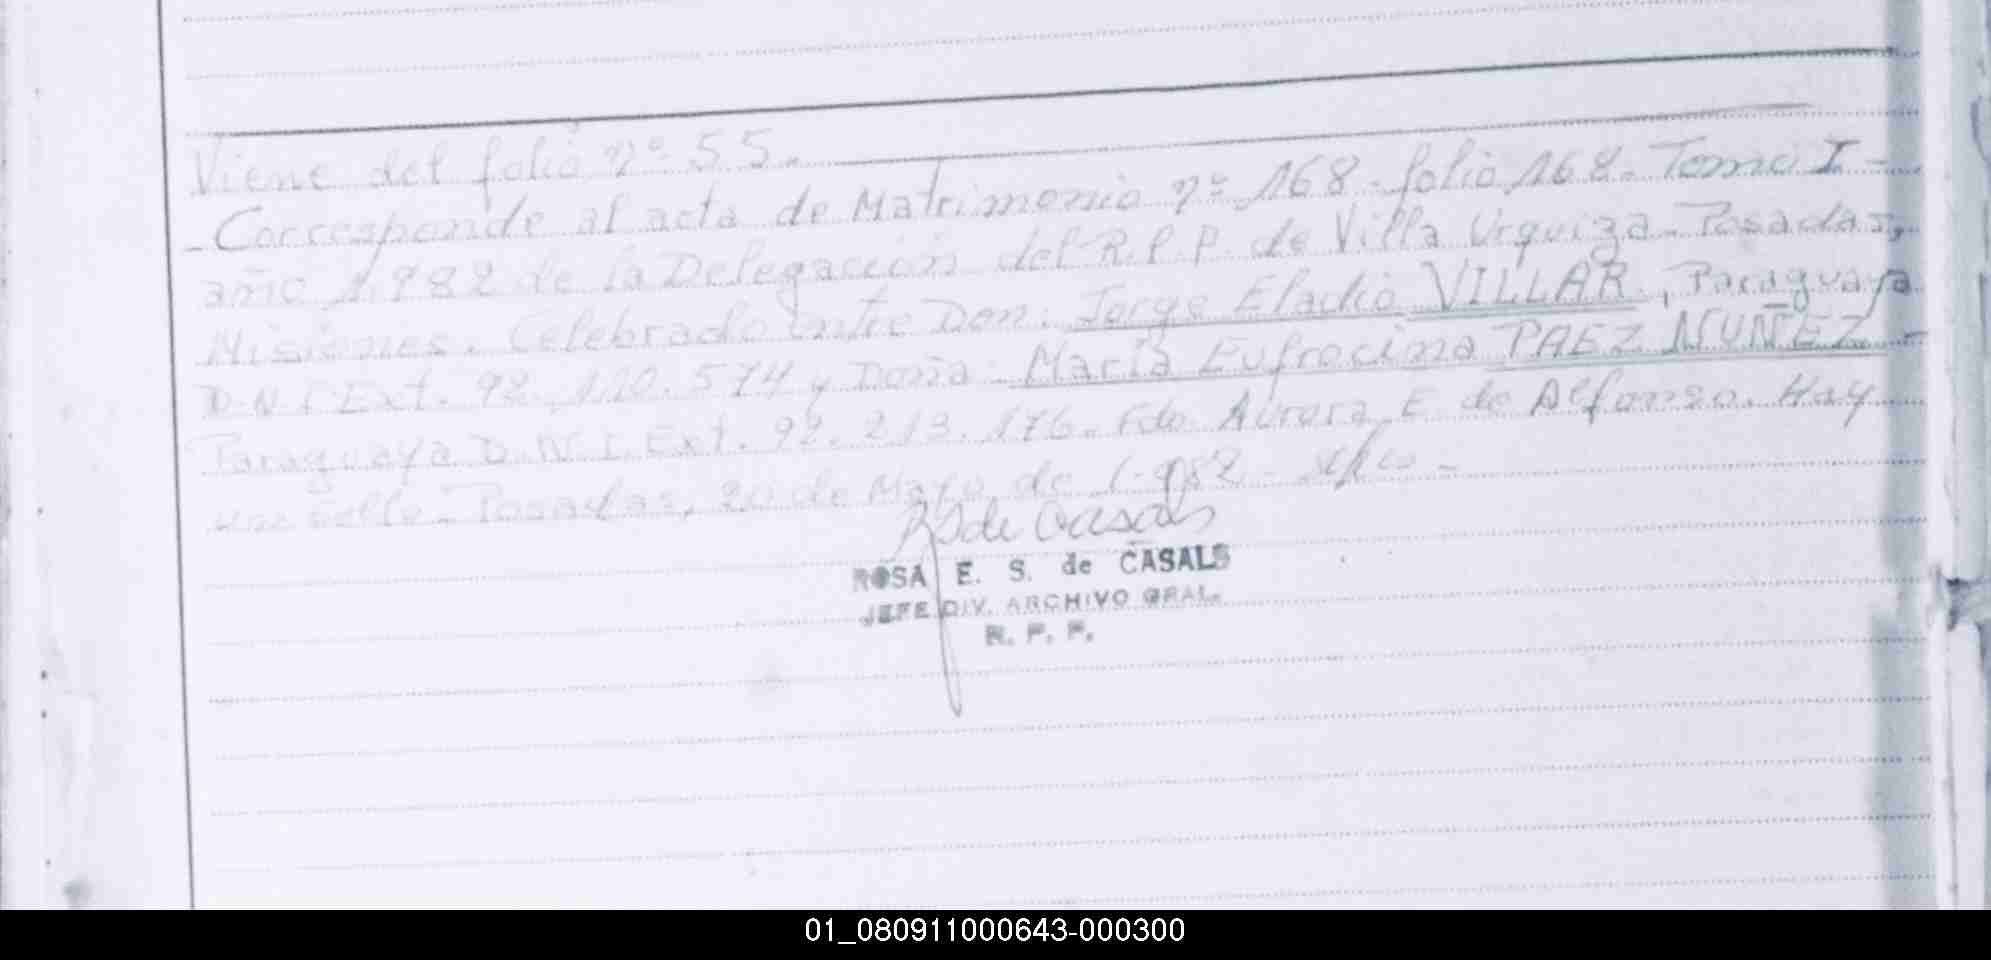 Viene del folio nº 55.
- Corresponde al acta de Matrimonio nº 168 - folio 168 - Tomo I -
año 1.982 de la Delegación del R.P.P. de Villa Urquiza - Posadas,
Misiones. Celebrado entre Don: Jorge Eladio VILLAR, Paraguaya
D.N.I. Ext. 92.120.574 y Doña: María Eufrocina PAEZ NUÑEZ -
Paraguaya D.N.I. Ext. 92.213.176. Fdo Aurora E. de Alfonso. Hay
un sello - Posadas, 20 de Mayo de 1.982 -
RS de Casals
ROSA E. S. de CASALS
JEFE DIV. ARCHIVO GRAL.
R. P. P.
01_080911000643-000300